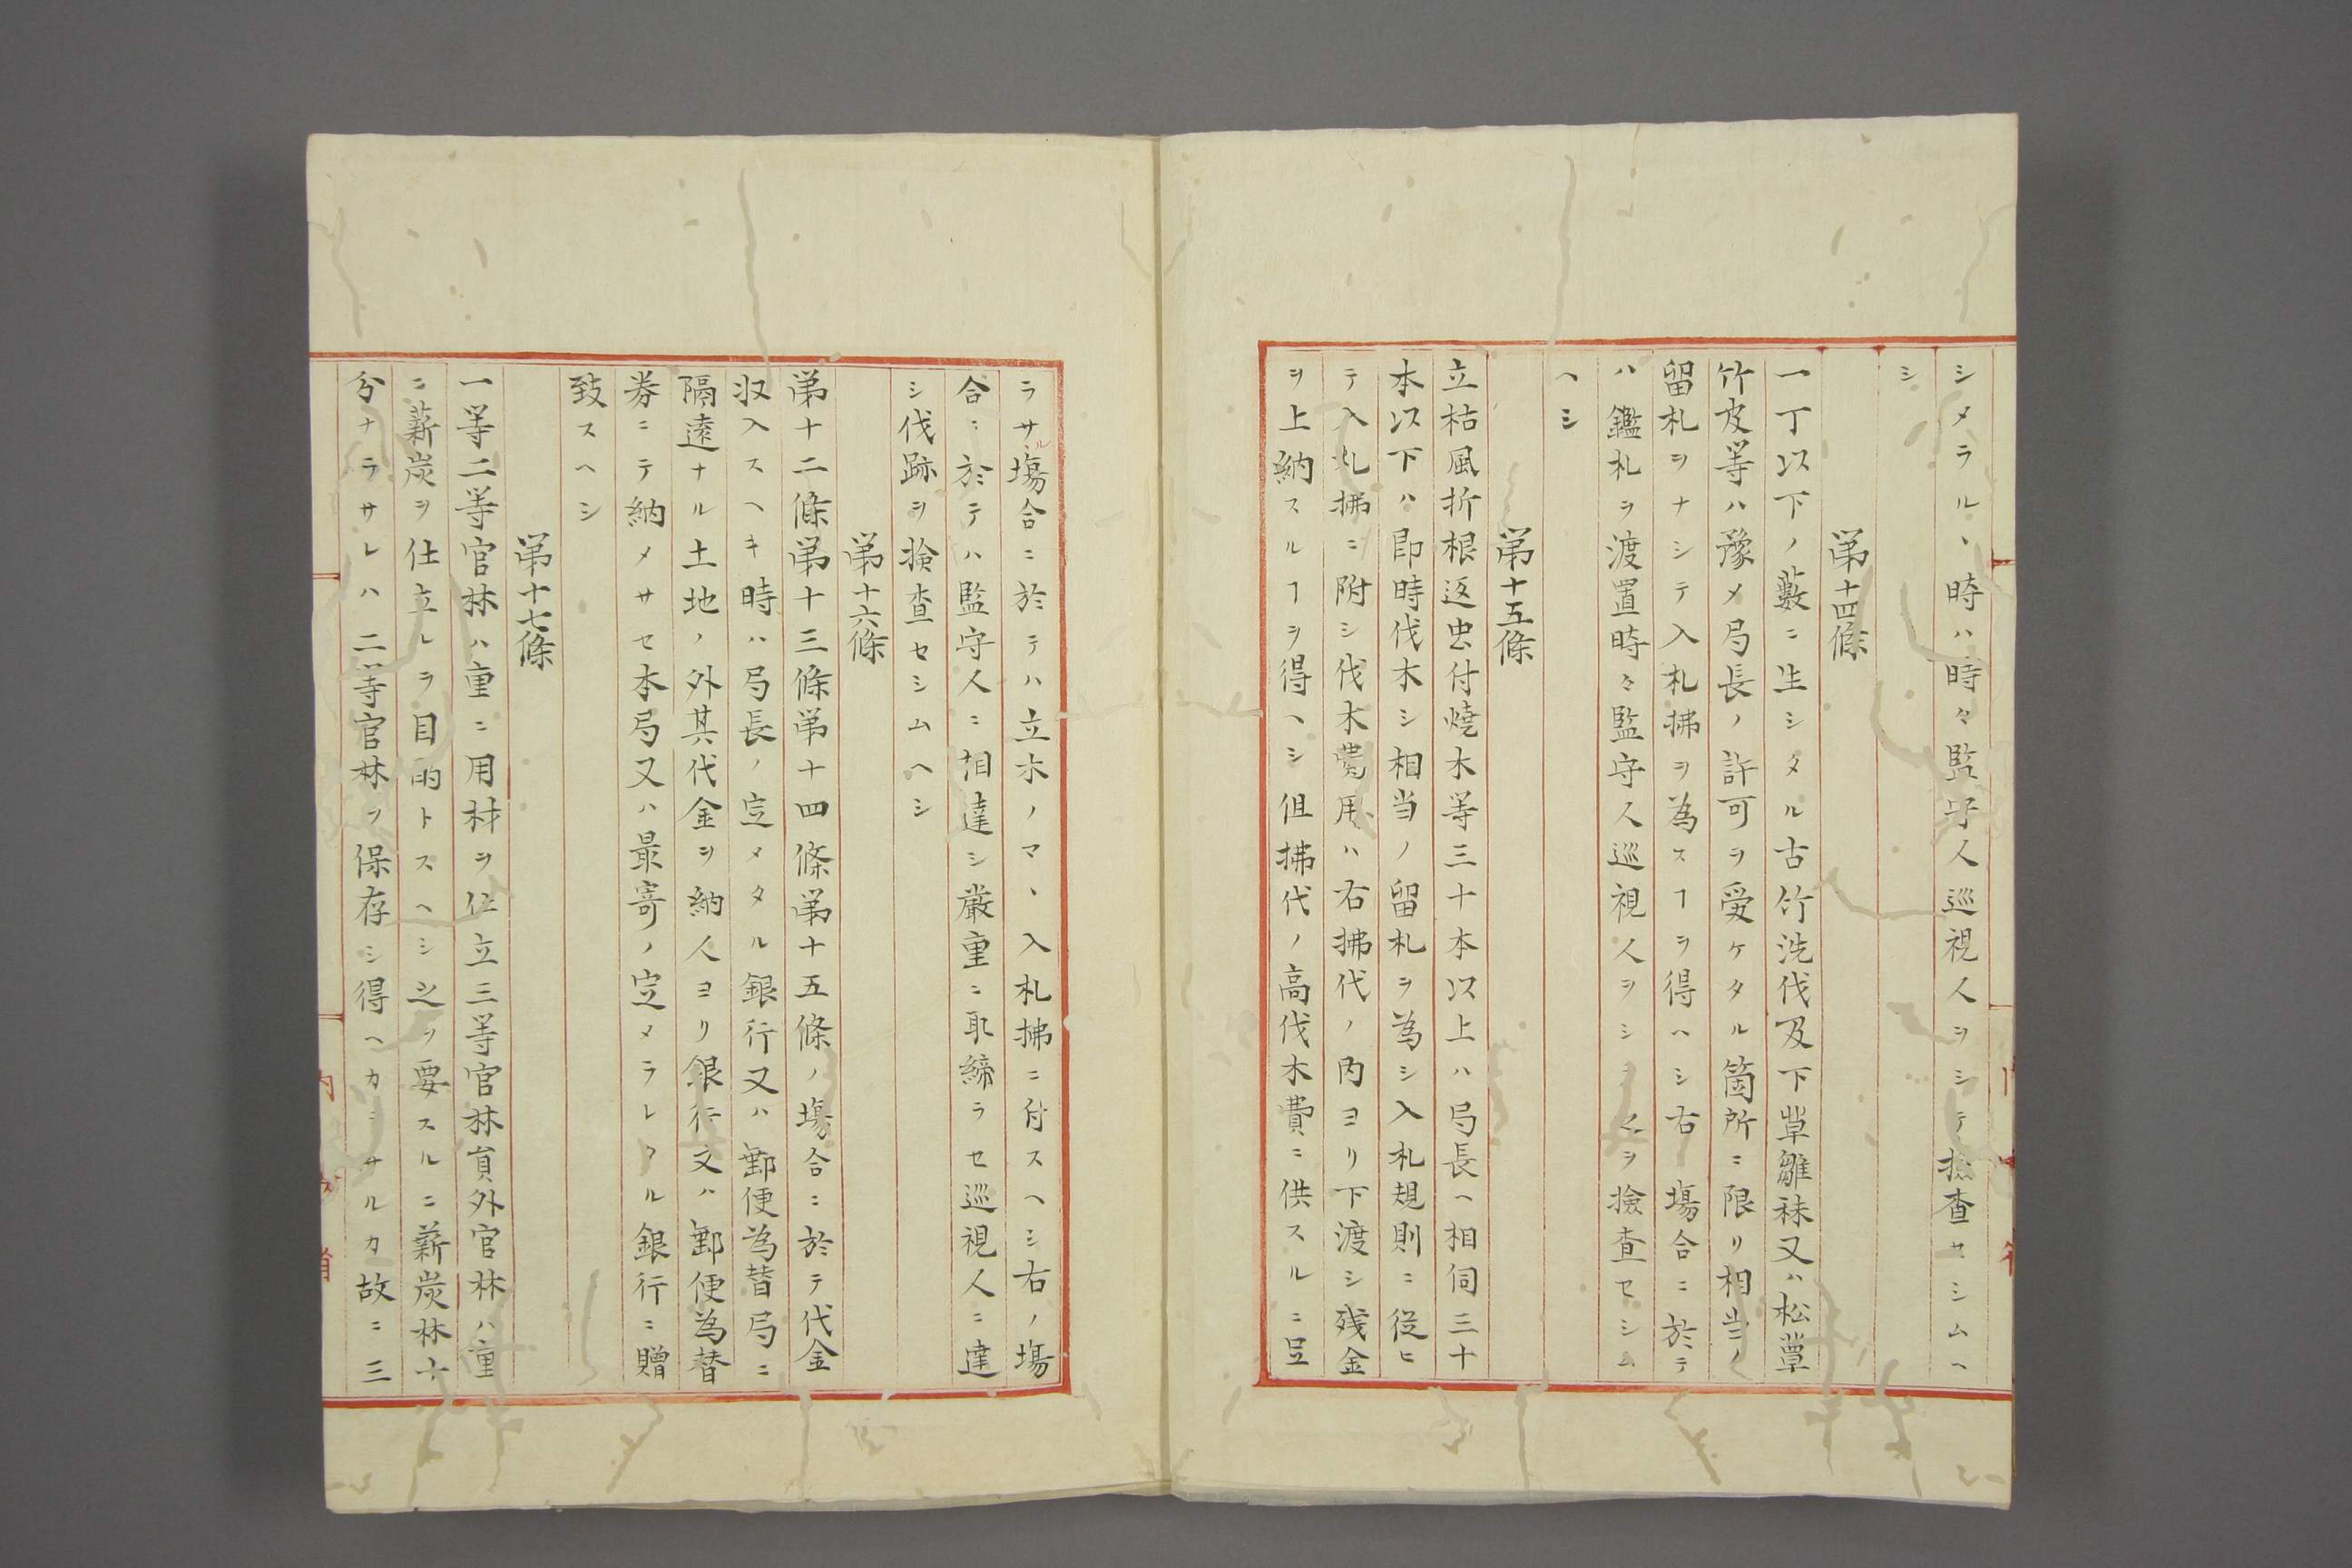 シメラルヽ時ハ時々監守人巡視人ヲシテ撿査セシムヘ
シ
第十四條
一丁以下ノ藪ニ生シタル古竹洗伐及下草雛秣又ハ松蕈
竹皮等ハ豫メ局長ノ許可ヲ受ケタル箇所ニ限リ相当ノ
留札ヲナシテ入札拂ヲ為スヿヲ得ヘシ右塲合ニ於テ
ハ鑑札ヲ渡置時々監守人巡視人ヲシ之ヲ撿査セシム
ヘシ
第十五條
立枯風折根返虫付燒木等三十本以上ハ局長ヘ相伺三十
本以下ハ即時伐木シ相当ノ留札ヲ為シ入札規則ニ從ヒ
テ入札拂ニ附シ伐木費用ハ右拂代ノ内ヨリ下渡シ残金
ヲ上納スルヿヲ得ヘシ但拂代ノ高伐木費ニ供スルニ足
ラサル塲合ニ於テハ立木ノマヽ入札拂ニ付スヘシ右ノ塲
合ニ於テハ監守人ニ相達シ嚴重ニ取締ラセ巡視人ニ達
シ伐跡ヲ撿査セシムヘシ
第十六條
第十二條第十三條第十四條第十五條ノ塲合ニ於テ代金
収入スヘキ時ハ局長ノ定メタル銀行又ハ郵便為替局ニ
隔遠ナル土地ノ外其代金ヲ納人ヨリ銀行又ハ郵便為替
券ニテ納メサセ本局又ハ最寄ノ定メラレタル銀行ニ贈
致スヘシ
第十七條
一等二等官林ハ重ニ用材ヲ仕立三等官林負外官林ハ重
ニ薪炭ヲ仕立レヲ目的トスヘシ之ヲ要スルニ薪炭林十
分ナラサレハ二等官林ヲ保存シ得ヘカラサルカ故ニ三